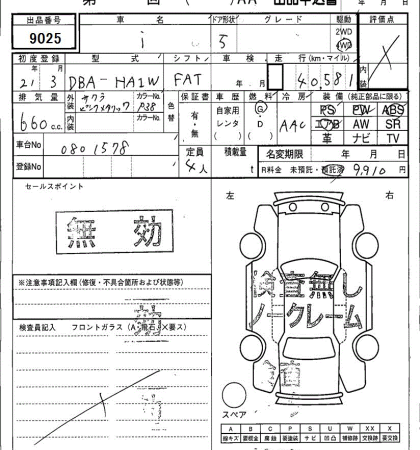 出品番号 車名 ドア形状 グレード 駆動 評価点
9025 i 5 2WD 4WD 内 X
初度登録 型式 シフト 車検 走行(km・マイル)
21年 3月 DBA-HA1W FAT 年 月 40,581
排気量 外装 サクラ カラーNo. P38 色替 保証書 車歴 燃料 冷房 装備(純正部品に限る)
660 c.c. 内装 カラーNo. 有・無 自家用 レンタ G D AAC PS PW ABS
エアB AW SR
革 ナビ TV
車台No 0801578 定員 4人 積載量 t 名変期限 年 月 日
登録No R料金 未預託・預託済 9,910 円
セールスポイント 左 右
無効
※注意事項記入欄(修復・不具合箇所および状態等)
検査無し
ノークレーム
検査員記入 フロントガラス(A・飛石・X要ス)
スペア
A B C P S U W X XX
線キズ 要板金 要塗装 サビ 凹凸 補修跡 交換跡 要交換